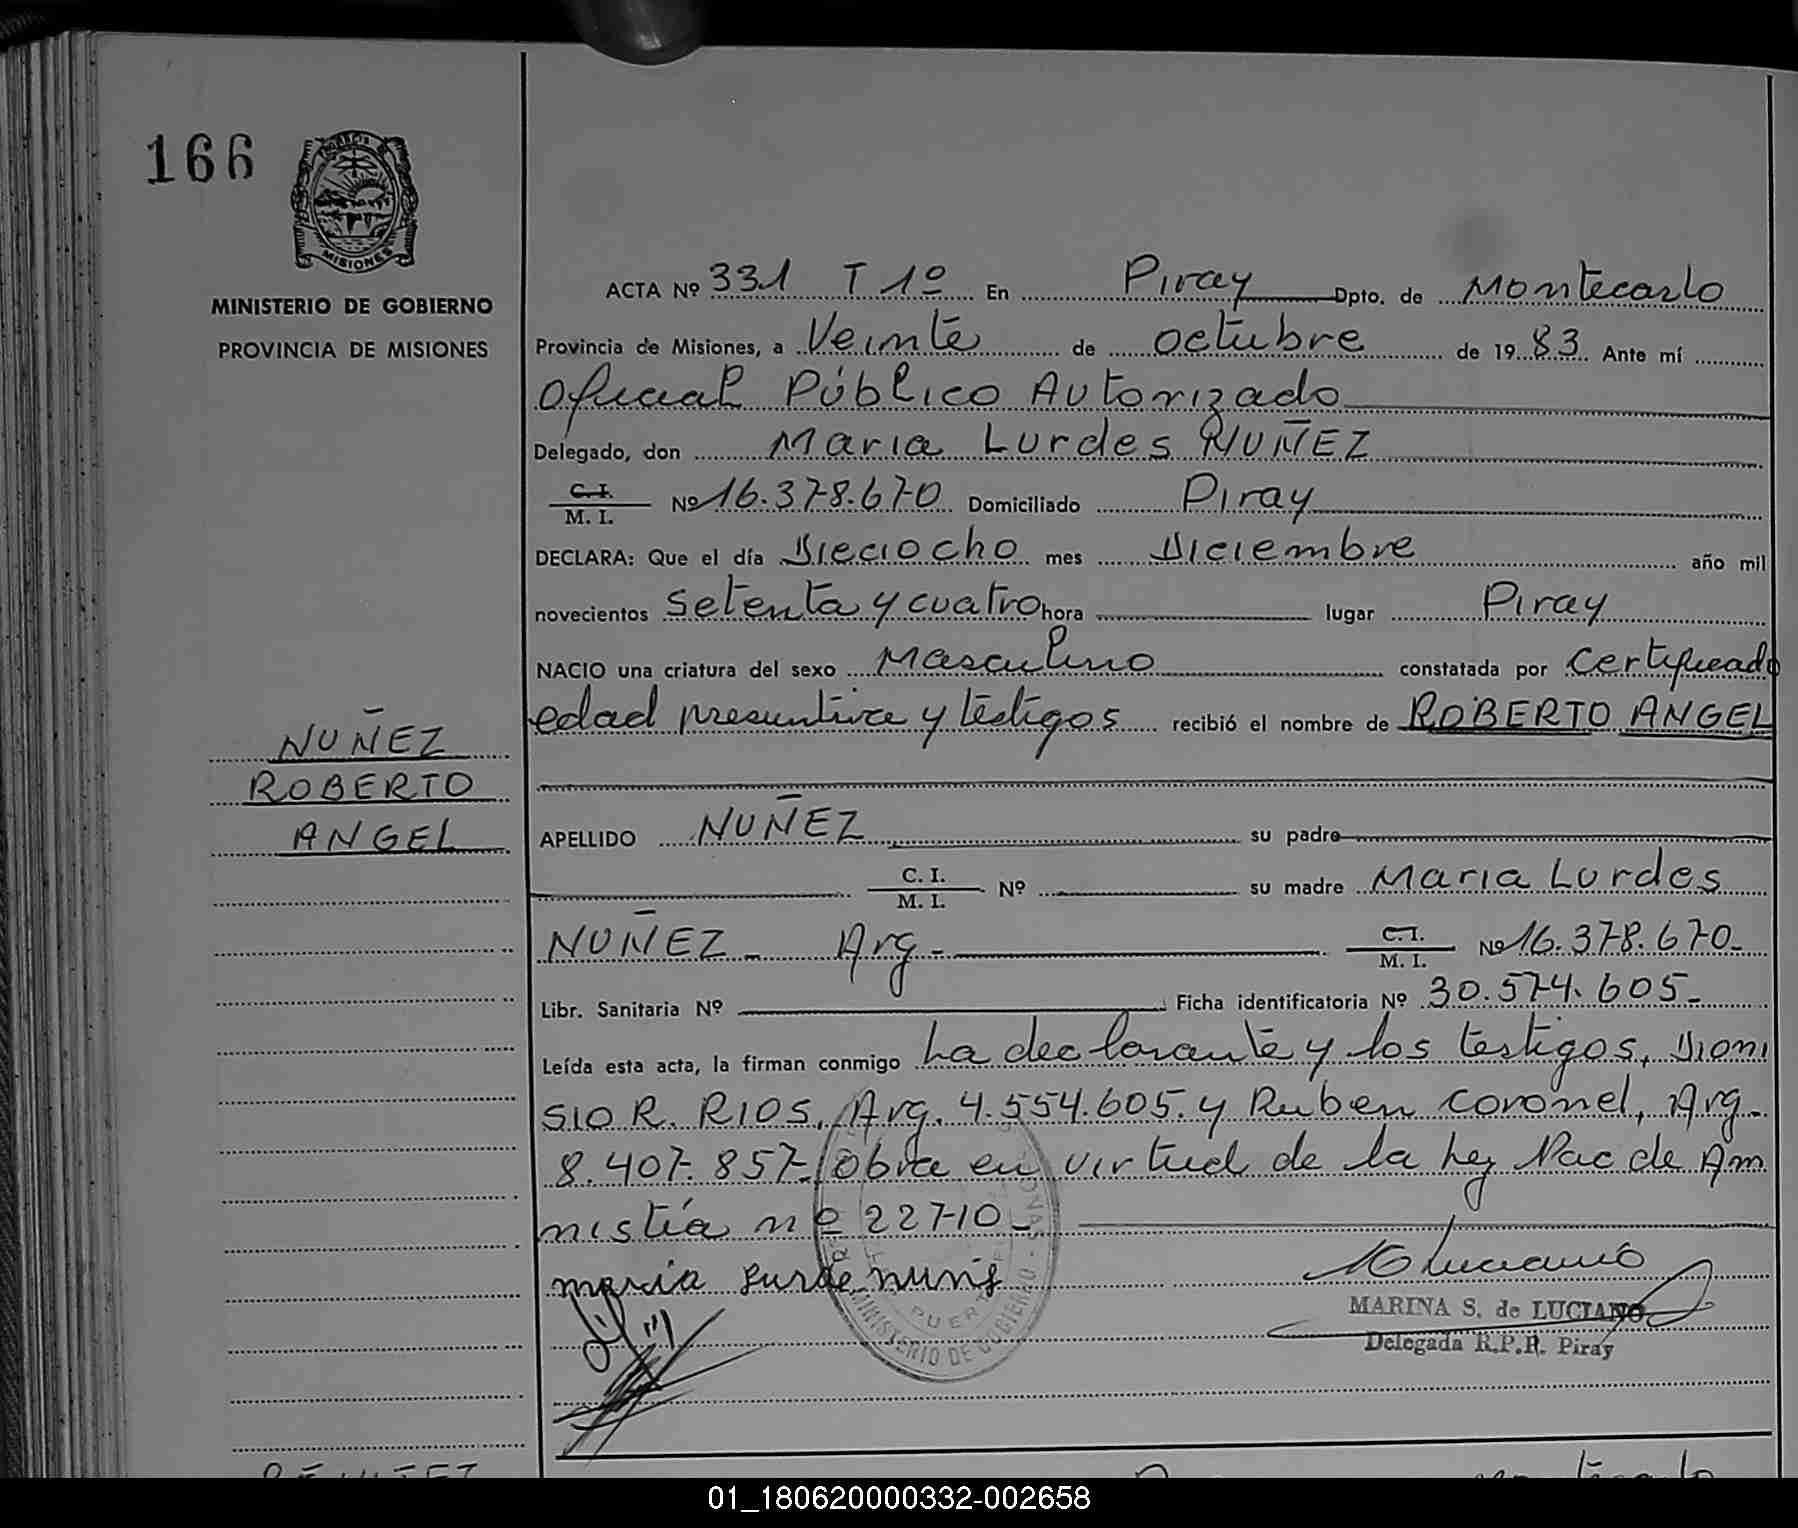 166
MISIONES
MINISTERIO DE GOBIERNO
PROVINCIA DE MISIONES
NUÑEZ
ROBERTO
ANGEL
ACTA Nº 331 T 1º En Piray Dpto. de Montecarlo
Provincia de Misiones, a Veinte de octubre de 1983 Ante mí
Oficial Público Autorizado
Delegado, don Maria Lurdes NUÑEZ
C. I.
M. I. Nº 16.378.670 Domiciliado Piray
DECLARA: Que el día Dieciocho mes Diciembre año mil
novecientos setenta y cuatro hora lugar Piray
NACIO una criatura del sexo Masculino constatada por certificado
edad presuntiva y testigos recibió el nombre de ROBERTO ANGEL
APELLIDO NUÑEZ su padre
C. I.
M. I. Nº su madre Maria Lurdes
NUÑEZ - Arg - C. I.
M. I. Nº 16.378.670-
Libr. Sanitaria Nº Ficha identificatoria Nº 30.574.605-
Leída esta acta, la firman conmigo La declarante y los testigos, Dioni
sio R. RIOS, Arg. 4.554.605. y Ruben Coronel, Arg.
8.407.857- Obra en virtud de la ley Nac de Am
nistía nº 22710-
maria Lurde nunis
MINISTERIO DE GOBIERNO
MARINA S. de LUCIANO
Delegada R.P.R. Piray
01_180620000332-002658